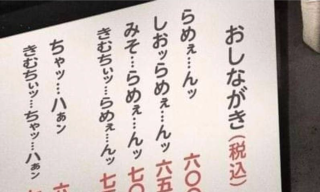 おしながき(税込)
らめぇ…んッ 六〇〇
しおッらめぇ…んッ 六五
みそ…らめぇ…んッ 七〇
きむちぃッ…らめぇ…んッ 七
ちゃッ…ハぁン
きむちぃッ…ちゃッ…ハぁン